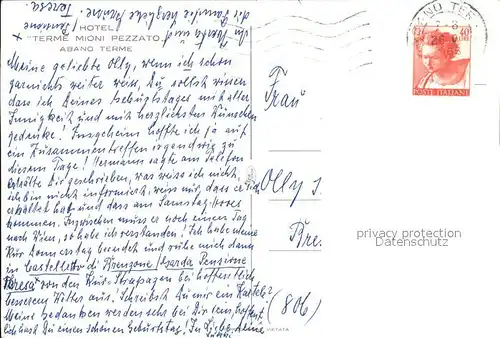 der Familie herzliche Grüsse.
Theresa.
HOTEL
"TERME MIONI PEZZATO"
ABANO TERME
Meine geliebte Olly, wenn ich schon
garnichts weiter weiss, Du sollst wissen
dass ich Deines Geburtstages mit aller
Innigkeit und mit herzlichsten Wünschen
gedenke! Insgeheim hoffte ich ja auf
ein Zusammentreffen irgendwie zu
diesem Tage! Hermann sagte am Telefon
er hätte Dir geschrieben, was weiss ich nicht,
ich bin nicht informiert, weiss nur dass er
und dass am Samstag
kommen. Inzwischen muss er noch einen Tag
nach Wien, so habe ich verstanden! Ich habe meine
Kur Donnerstag beendet und ruhe mich dann
in Castelletto di Brenzone/Garda Pensione
von den Kur-Strapazen bei hoffentlich
besserem Wetter aus. Schreibst Du mir ein Kärtele?
Meine Gedanken werden sehr bei Dir sein, hoffentl.
hast Du einen schönen Geburtstag! In Liebe deine
ABANO TERME
POSTE ITALIANE
Frau
Olly S.
Bre.
(806)
privacy protection
Datenschutz